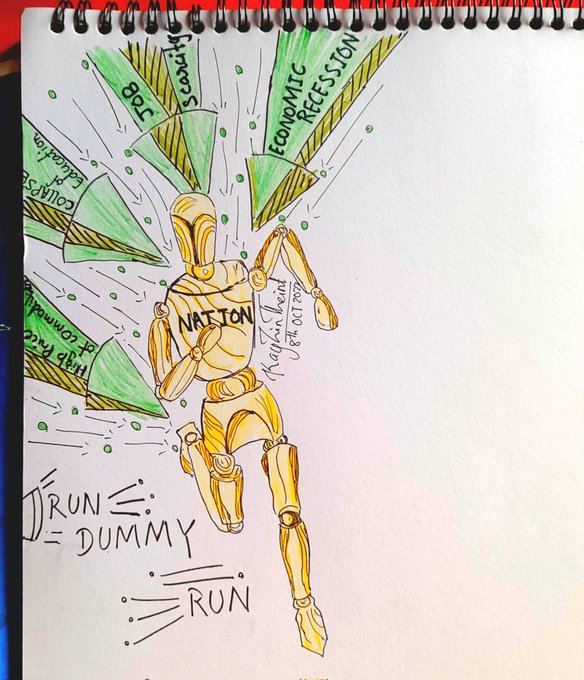 JOB
scarcity
ECONOMIC
RECESSION
COLLAPSE
of
Education
High Price
of
NATION
8th OCT
RUN
DUMMY
RUN